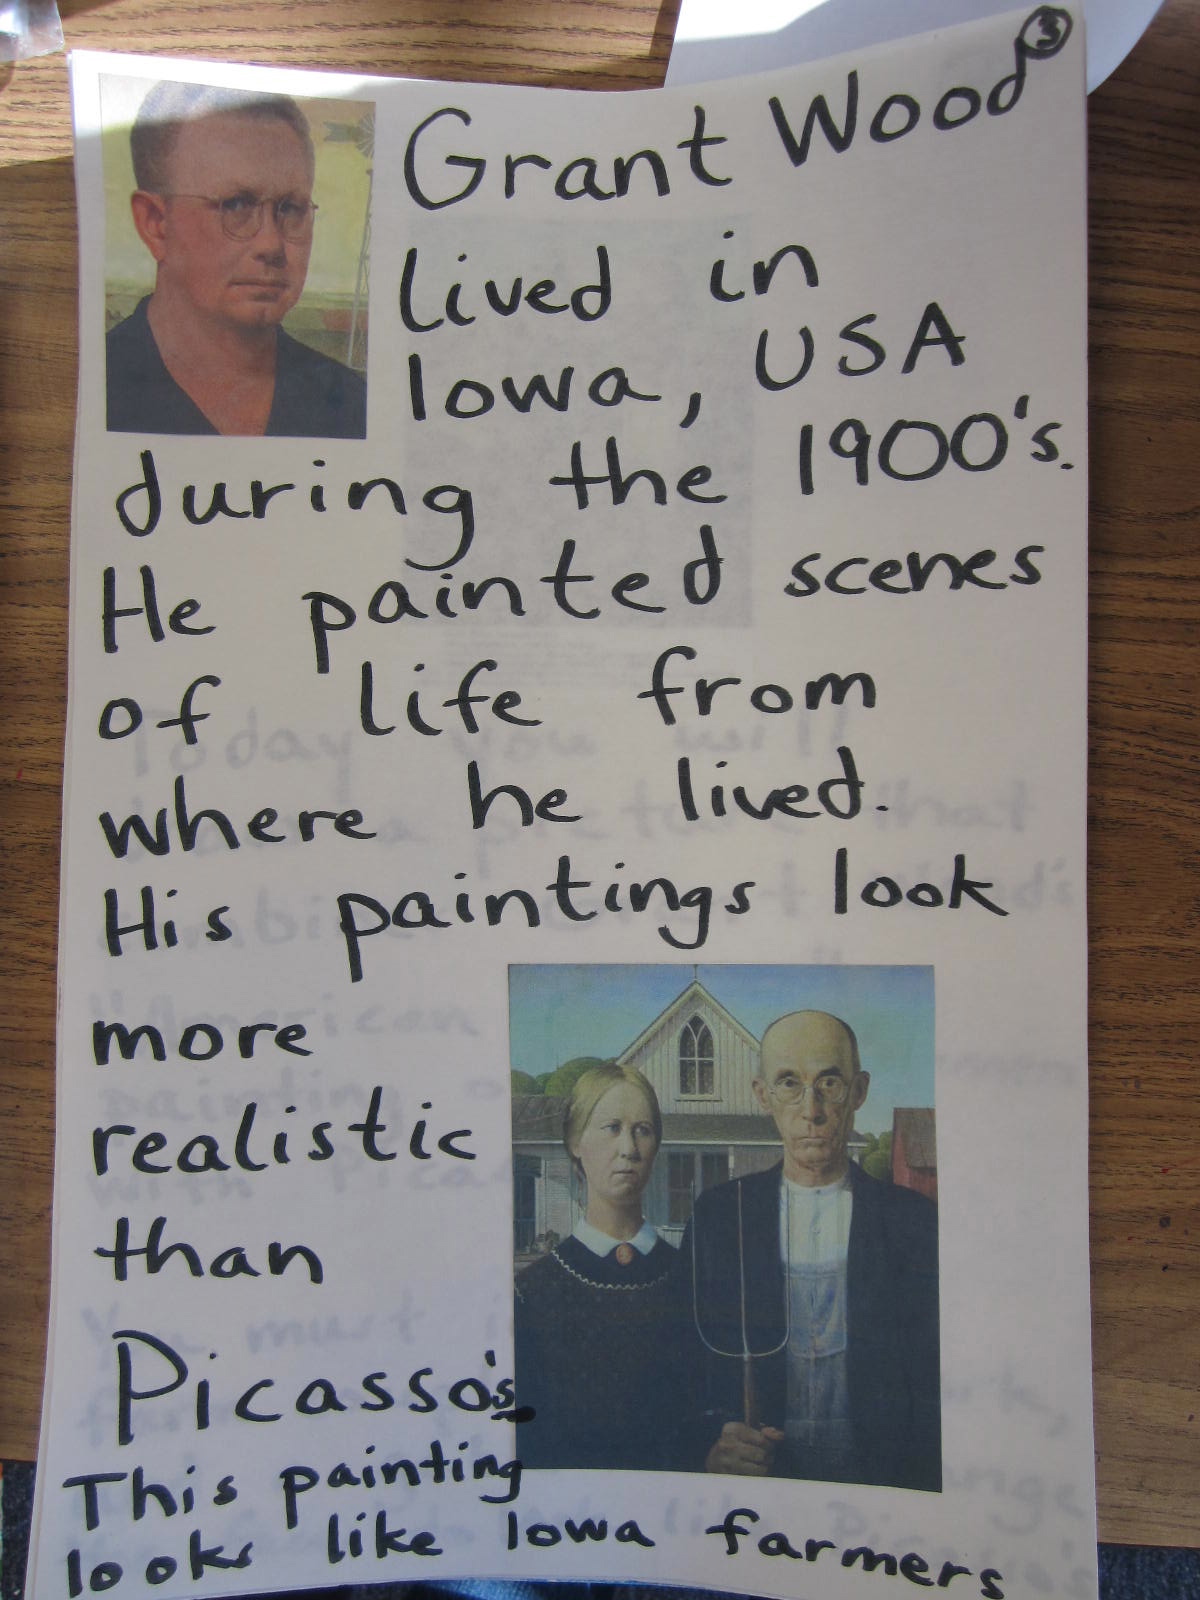 3
Grant Wood
lived in
Iowa, USA
during the 1900's.
He painted scenes
of life from
where he lived.
His paintings look
more
realistic
than
Picasso's.
This painting
looks like Iowa farmers
Today you will